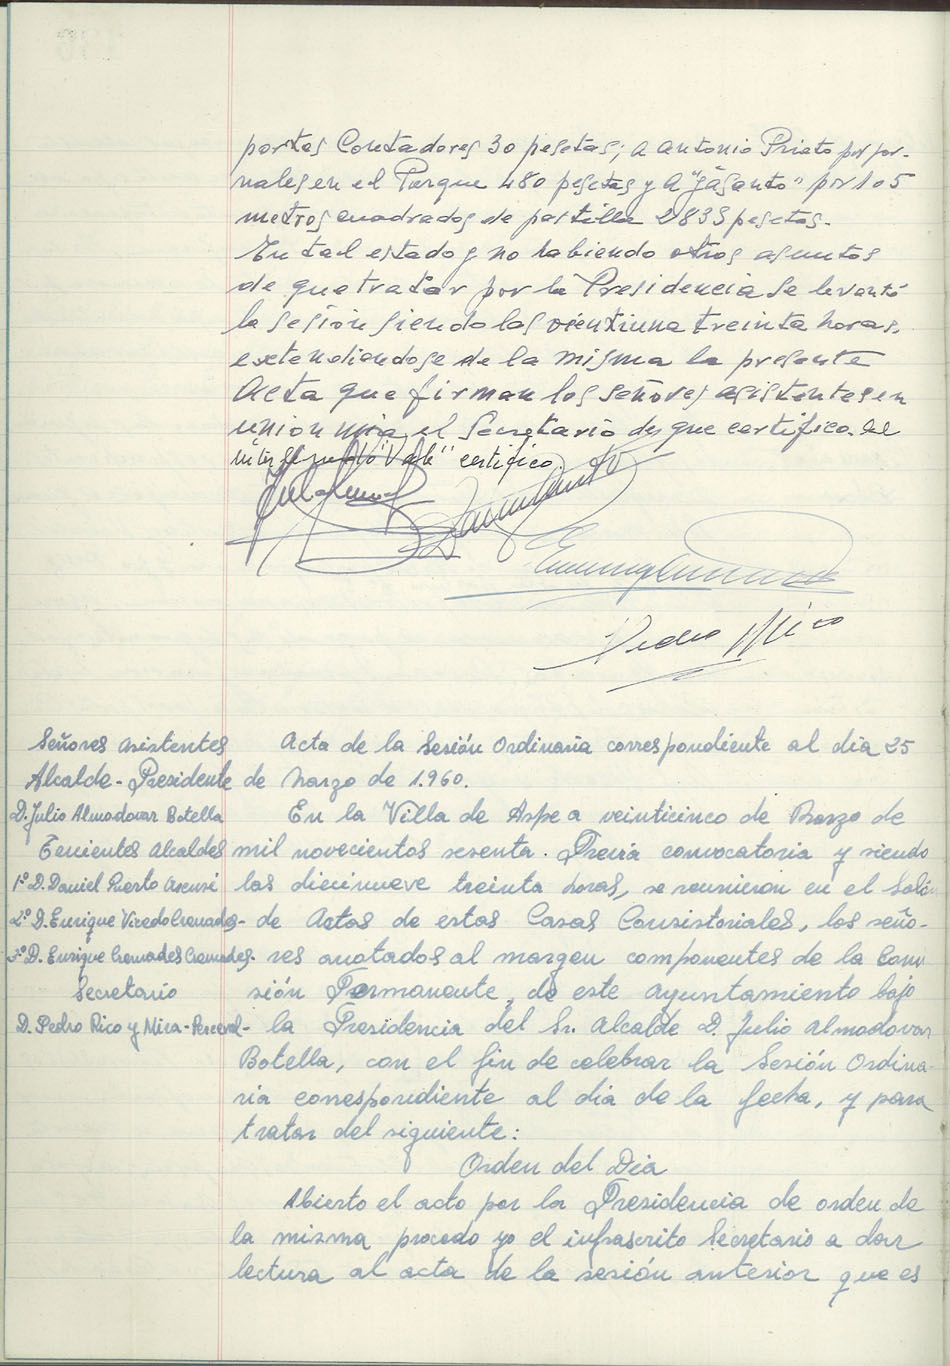 portes Contadores 30 pesetas; a Antonio Prieto por jor-
nales en el Parque 480 pesetas y a "Jasanto" por 105
metros cuadrados de pastilla 2835 pesetas.
En tal estado y no habiendo otros asuntos
de que tratar por la Presidencia se levantó
la sesión siendo las veintiuna treinta horas,
extendiendose de la misma la presente
Acta que firman los señores asistentes en
union mia el Secretario de que certifico. El
"Vale" certifico.
Pedro Rico
Señores asistentes
Alcalde-Presidente
D. Julio Almodovar Botella
Tenientes Alcaldes
1º D. Daniel Puerto Asensi
2º D. Enrique Viredo Cremades-
3º D. Enrique Cremades Cremades-
Secretario
D. Pedro Rico y Mira-Perceval-
Acta de la Sesión Ordinaria correspondiente al dia 25
de Marzo de 1.960.
En la Villa de Aspe a veinticinco de Marzo de
mil novecientos sesenta. Previa convocatoria y siendo
las diecinueve treinta horas, se reunieron en el Salón
de Actos de estas Casas Consistoriales, los seño-
res anotados al margen componentes de la Comi
sión Permanente, de este Ayuntamiento bajo
la Presidencia del Sr. Alcalde D. Julio Almodovar
Botella, con el fin de celebrar la Sesión Ordina-
ria correspondiente al dia de la fecha, y para
tratar del siguiente:
Orden del Dia
Abierto el acto por la Presidencia de orden de
la misma procedo yo el infrascrito Secretario a dar
lectura al acta de la sesión anterior que es